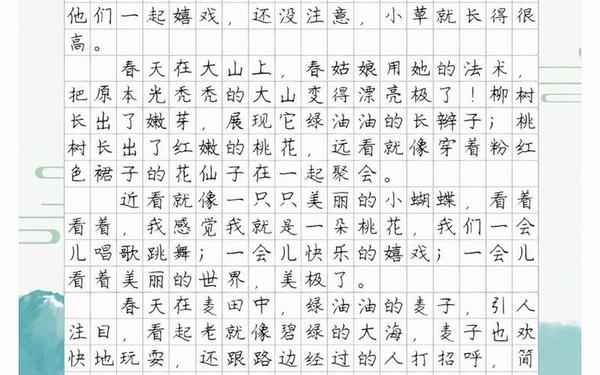 他们一起嬉戏，还没注意，小草就长得很
高。
春天在大山上，春姑娘用她的法术，
把原本光秃秃的大山变得漂亮极了！柳树
长出了嫩芽，展现它绿油油的长辫子；桃
树长出了红嫩的桃花，远看就像穿着粉红
色裙子的花仙子在一起聚会。
近看就像一只只美丽的小蝴蝶，看着
看着，我感觉我就是一朵桃花，我们一会
儿唱歌跳舞；一会儿快乐的嬉戏；一会儿
看着美丽的世界，美极了。
春天在麦田中，绿油油的麦子，引人
注目，看起老就像碧绿的大海，麦子也欢
快地玩耍，还跟路边经过的人打招呼，简